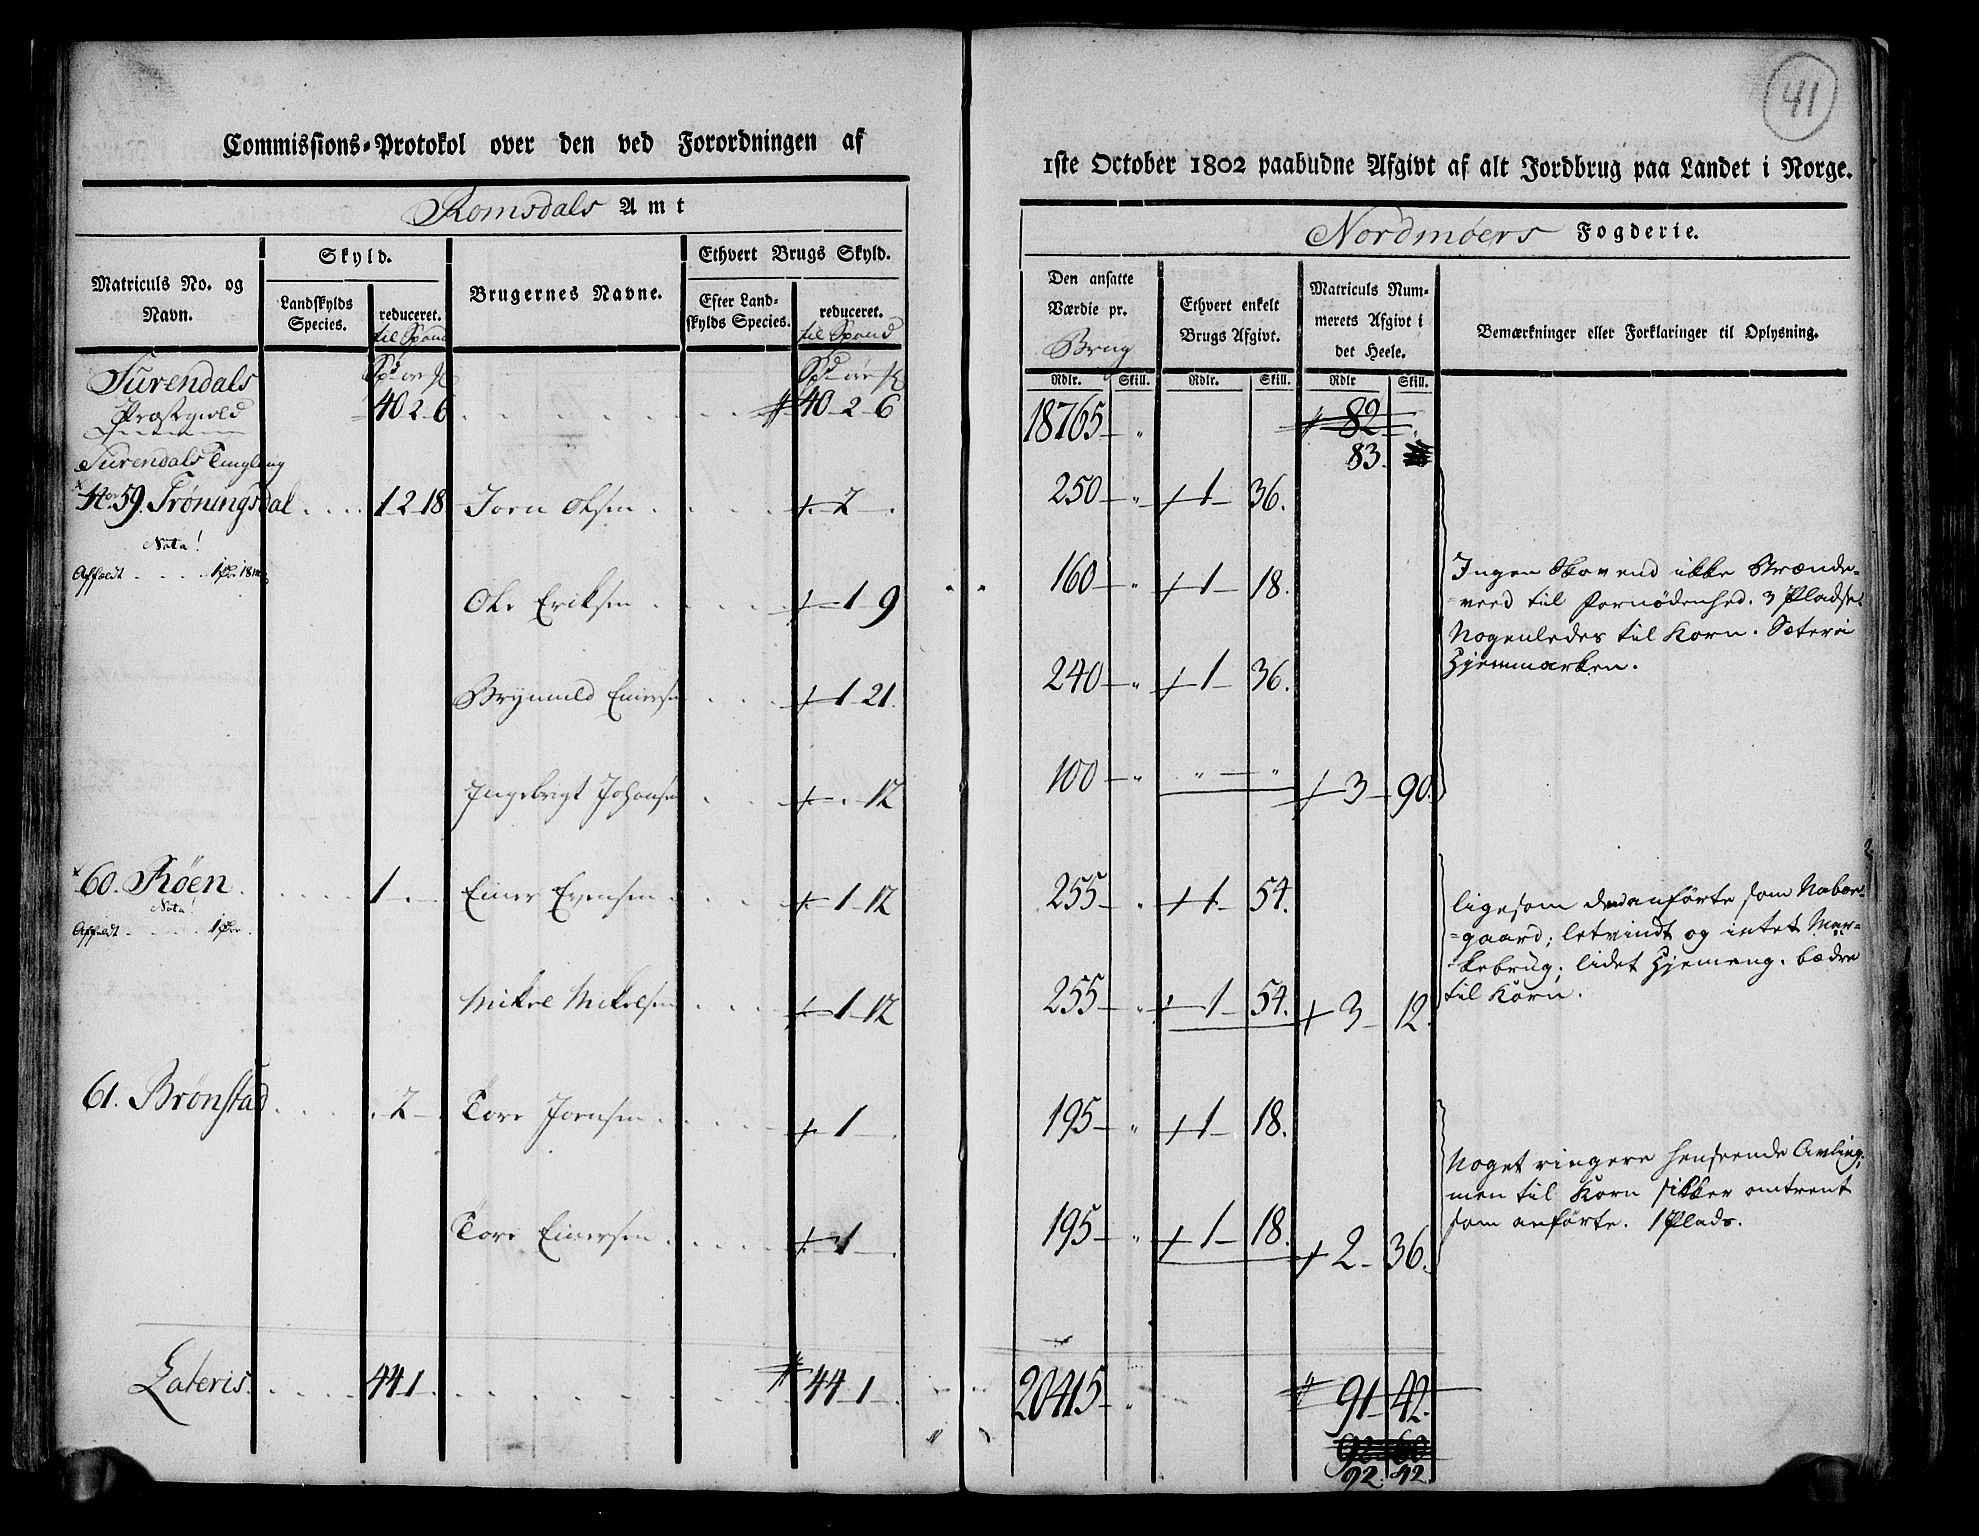 41
Commissions-Protokol over den ved Forordningen af
1ste October 1802 paabudne Afgivt af alt Jordbrug paa Landet i Norge.
Romsdals Amt
Nordmøers Fogderie.
Matriculs No. og Navn.
Skyld.
Landskylds Species.
reduceret. til Spand
Brugernes Navne.
Ethvert Brugs Skyld.
Efter Landskylds Species.
reduceret. til Spand
Den ansatte Værdie pr. Brug
Ethvert enkelt Brugs Afgivt.
Matriculs Nummerets Afgivt i det Heele.
Bemærkninger eller Forklaringer til Oplysning.
Rdlr. Skill. Rdlr. Skill. Rdlr Skill.
Surendals Præstegield 40 2 6 40 2 6 18765 82
83
Surendals Tinglaug
No 59. Trøningsdal 1 2 18 Jorn Olsen 2 250 1 36.
Nota!
Affældt 1 18
Ole Eriksen 1 9 160 1 18.
Brynnild Einersen 1 21. 240 1 36.
Ingebrigt Johansen 12 100 3 90.
Ingen Skov end ikke Brænde-
veed til Fornødenhed. 3 Pladse.
Nogenledes til Korn. Sæter i
Hjemmarken.
60. Røen 1 Einer Evensen 1 12 255 1 54.
Nota!
Affældt 1
Mikel Mikelsen 1 12 255 1 54. 3 12.
ligesom anførte som Nabor-
gaard; letvindt og intet Mar-
kebrug; lidet Hjemeng. bædre
til Korn.
61. Brønstad 2 Tore Jornsen 1 195 1 18.
Tore Einersen 1 195 1 18. 2 36.
Noget ringere henseende Avling,
men til Korn sikker omtrent
som anførte. 1 Plads.
Lateris 44 1 44 1 20415 91 42.
92 60
92 42